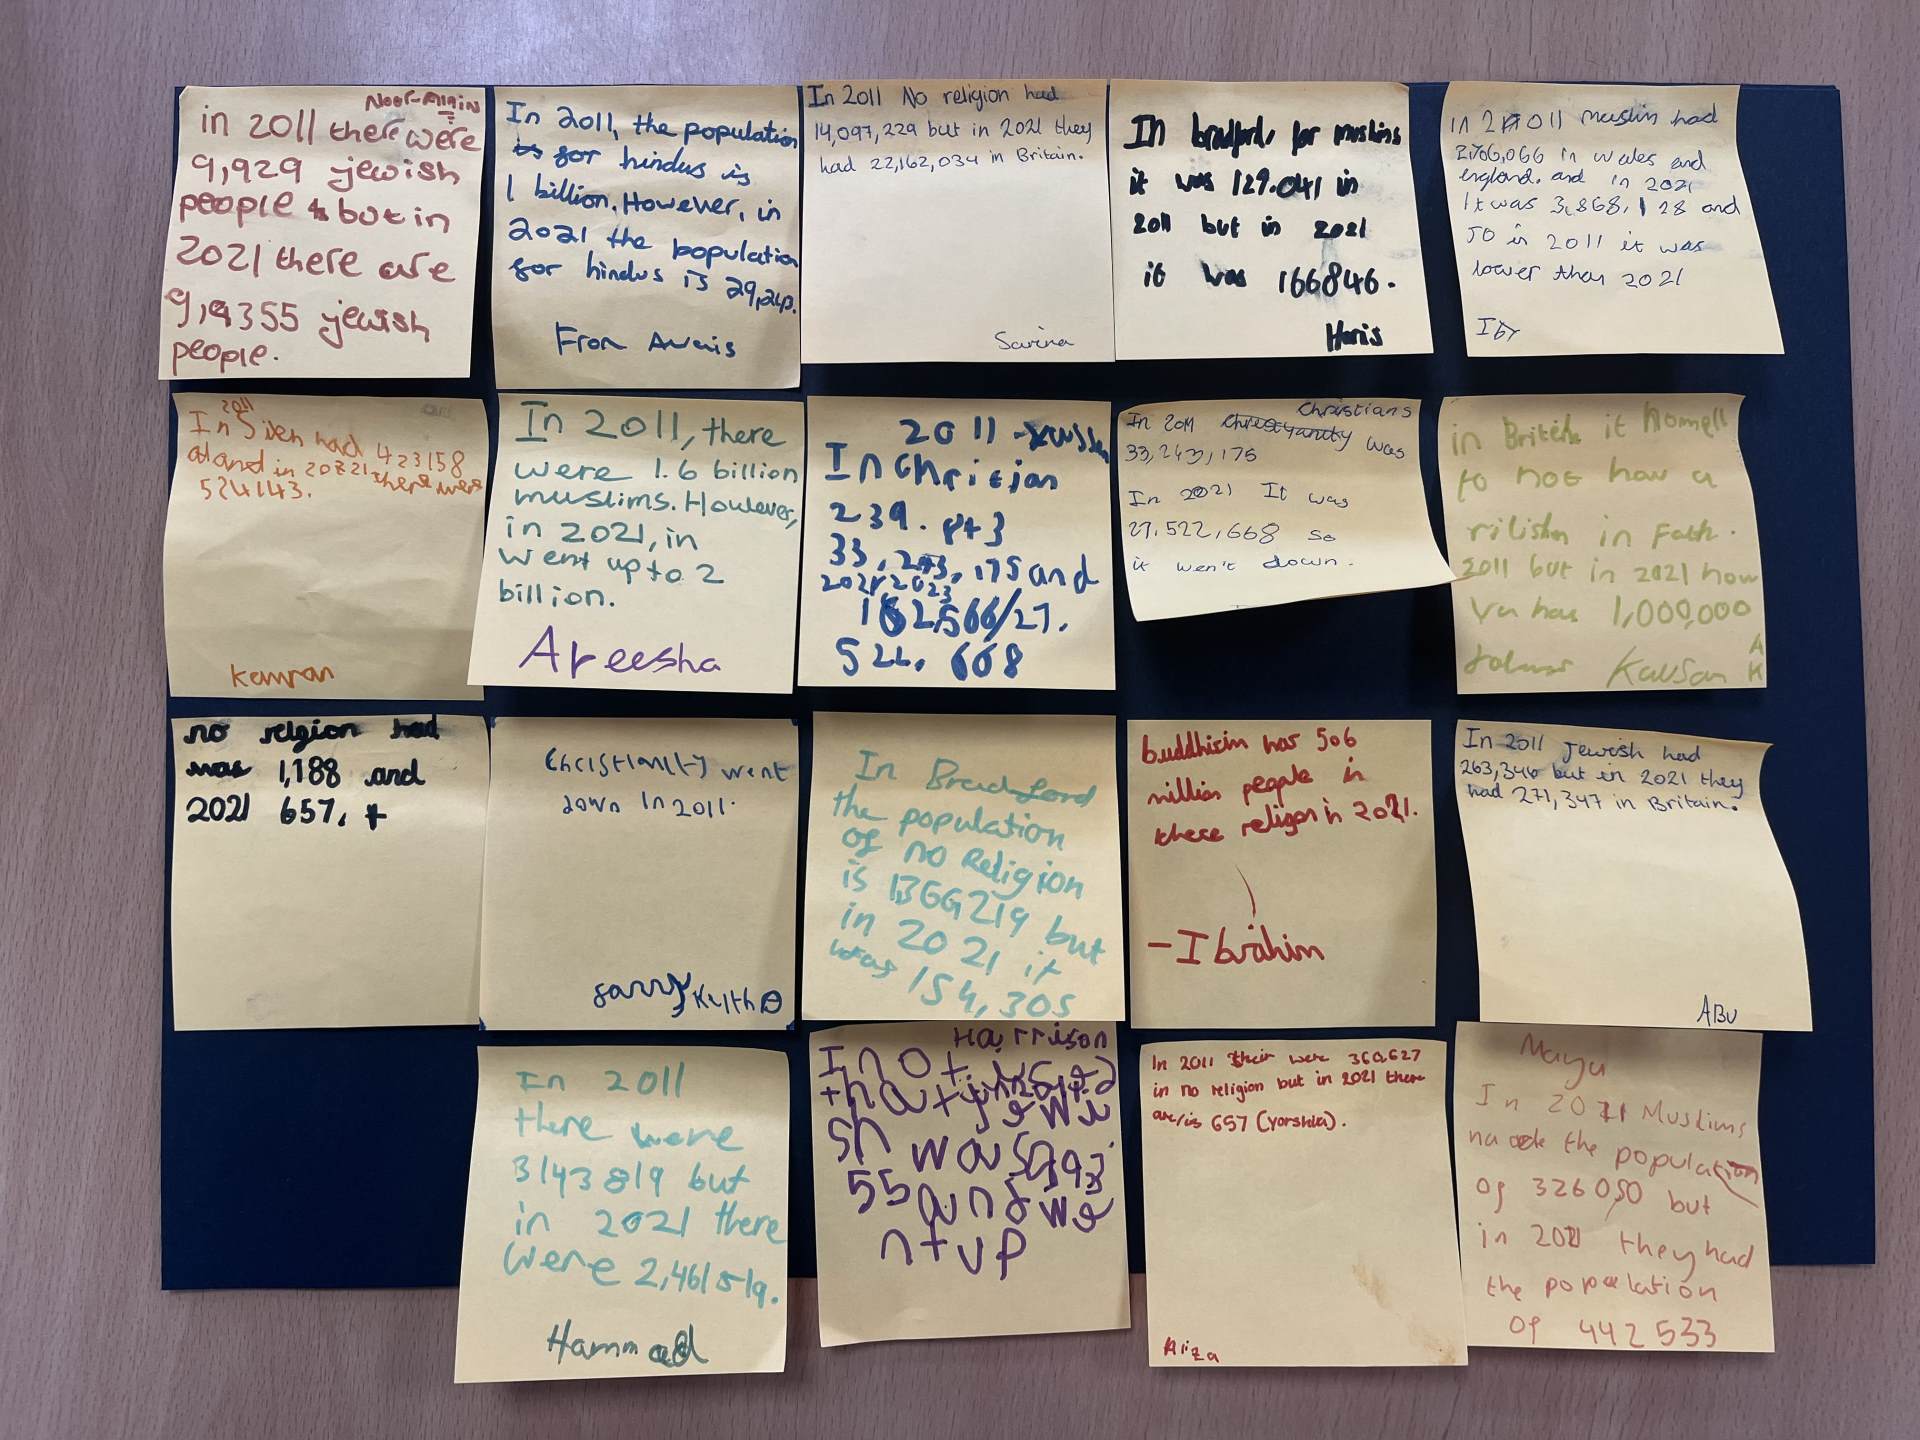 Noor-Alain
in 2011 there were
9,929 jewish
people but in
2021 there are
9,9355 jewish
people.
In 2011, the population
for hindus is
1 billion. However, in
2021 the population
for hindus is
From Awais
In 2011 No religion had
14,097,229 but in 2021 they
had 22,162,034 in Britain.
Savina
In bradford, for muslims
it was 129.041 in
2011 but in 2021
it was 166846.
Haris
in 2011 muslim had
2,706,066 in wales and
england. and in 2021
It was 3,868,128 and
so in 2011 it was
lower then 2021
2011
In Sikh had 423158
and in 2021 there were
524143.
Kamran
In 2011, there
were 1.6 billion
muslims. However,
in 2021, in
went up to 2
billion.
Areesha
2011
In Christian
239. 843
33, 243, 175 and
2021/2023
182,566/27.
522. 668
Christians
In 2011 was
33,243,175
In 2021 It was
27,522,668 so
it wen't down.
in British it Nomell
to not how a
in Fath.
2011 but in 2021 how
1,000,000
Kausar AK
no relgion had
was 1,188 and
2021 657. +
Christianity went
down in 2011.
In Bradford
the population
of no religion
is 1366219 but
in 2021 it
was 154,305
buddhism has 506
million people in
these religon in 2021.
- Ibrahim
In 2011 Jewish had
263,346 but in 2021 they
had 271,347 in Britain.
ABU
In 2011
there were
3143819 but
in 2021 there
were 2,461519.
Hammad
Harrison
I not
that jewi
sh was
55 and we
nt up
In 2011 their were 360,627
in no religion but in 2021 there
are/is 657 (yorshia).
Aiza
Maya
In 2021 Muslims
the population
of 326050 but
in they had
the popoelation
of 442 533